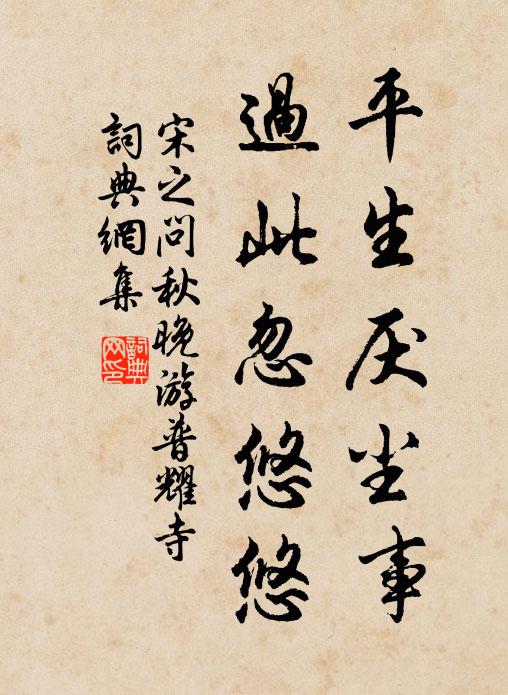 平生厌尘事
過此忽悠悠
宋之问秋晚游普耀寺
詞典網集
詞典网印